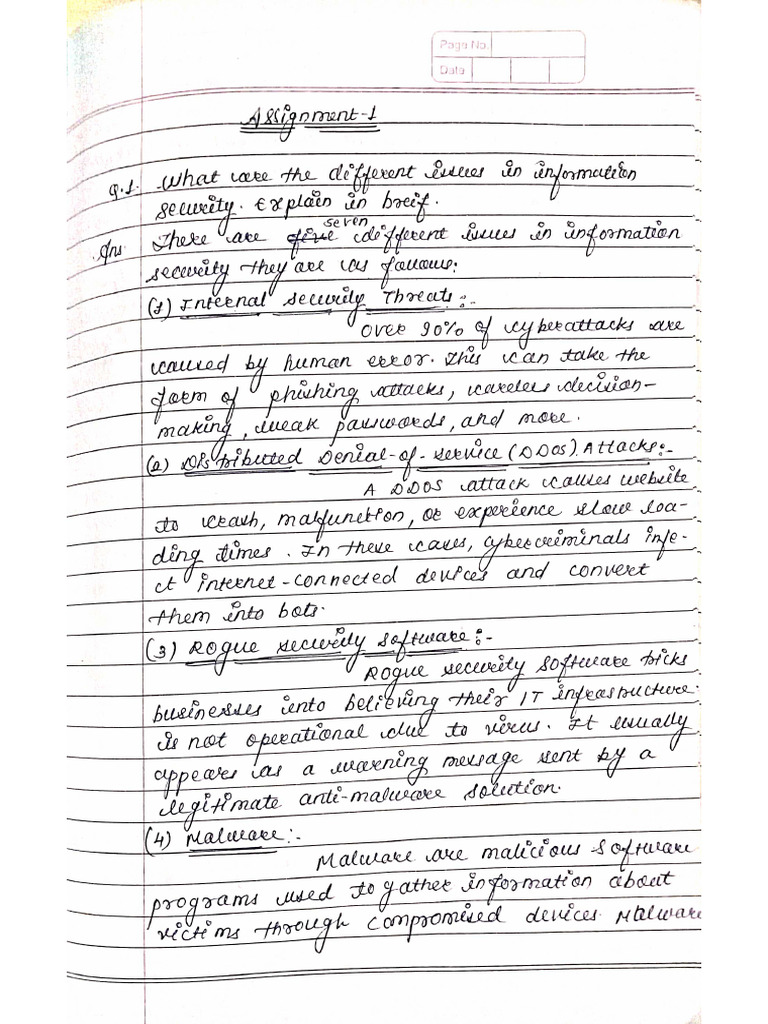 Page No.
Date
Assignment-1
Q.1. What are the different issues in information
security. Explain in breif.
seven
Ans There are five different issues in information
security they are as follows:
(1) Internal Security Threats:-
Over 90% of cyberattacks are
caused by human error. This can take the
form of phishing attacks, careless decision-
making, weak passwords, and more.
(2) Distributed Denial-of-service (DDos) Attacks:-
A DDOS attack causes website
to crash, malfunction, or experience slow loa-
ding times. In these cases, cybercriminals infe-
ct internet-connected devices and convert
them into bots.
(3) Rogue security software:-
Rogue security software tricks
businesses into believing their IT infrastructure
is not operational due to virus. It usually
appears as a warning message sent by a
legitimate anti-malware solution.
(4) Malware:-
Malware are malicious software
programs used to gather information about
victims through compromised devices. Malware